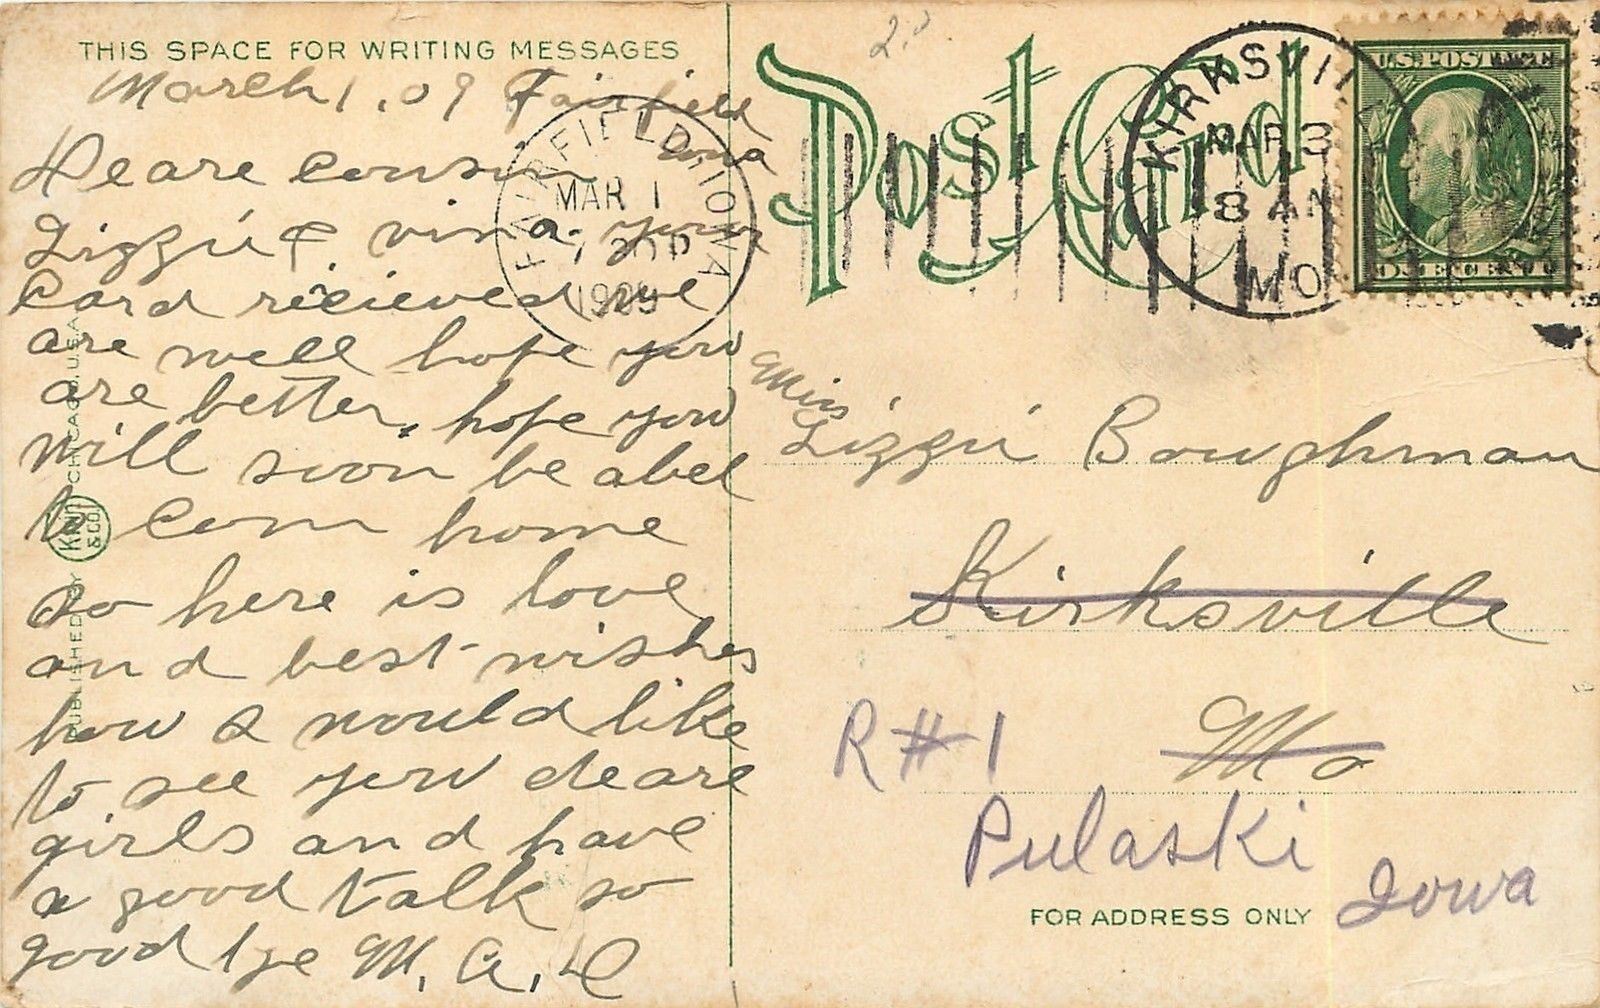 THIS SPACE FOR WRITING MESSAGES
March 1, 09 Fairfield
Deare cousin
Lizzie & vina. your
card recieved we
are well hope you
are better. hope you
will soon be abel
to com home
so here is love
and best wishes
how I would like
to see you deare
girls and have
a good talk so
good bye M. A.
PUBLISHED BY
& CO.
CHICAGO, U.S.A.
FAIRFIELD, IOWA
MAR 1
1909
Post Card
KIRKSVILLE
MAR 3
8 AM
MO
U.S. POSTAGE
ONE CENT
Miss
Lizzie Boughman
Kirksville
Mo
R#1
Pulaski
Iowa
FOR ADDRESS ONLY